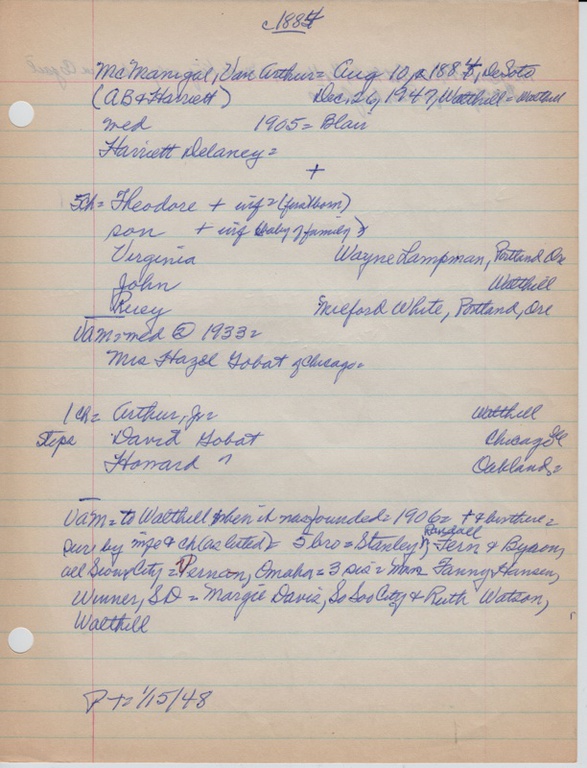 c1884
McManigal, Van Arthur = Aug 10, 1884, DeSoto
(AB & Harriett) Dec, 26, 1947, Walthill = Walthill
med 1905 = Blair
Harriett Delaney =
+
5ch = Theodore + inf = (firstborn)
son + inf (baby of family)
Virginia Wayne Lampman, Portland Ore
John Walthill
Rucy Milford White, Portland, Ore
VAM = med @ 1933 =
Mrs Hazel Gobat of Chicago =
1 ch = Arthur, Jr = Walthill
steps David Gobat Chicago Ill
Howard " Oakland, =
VAM = to Walthill when it was founded = 1906 = + & brother =
Randall
surv by wife & ch (as listed) = 5 bro = Stanley, Fern & Byron,
all Sioux City = Vernon, Omaha = 3 sis = Mrs Fanny Hansen,
Winner, SD = Margie Davis, So Soo City & Ruth Watson,
Walthill
P + = 1/15/48